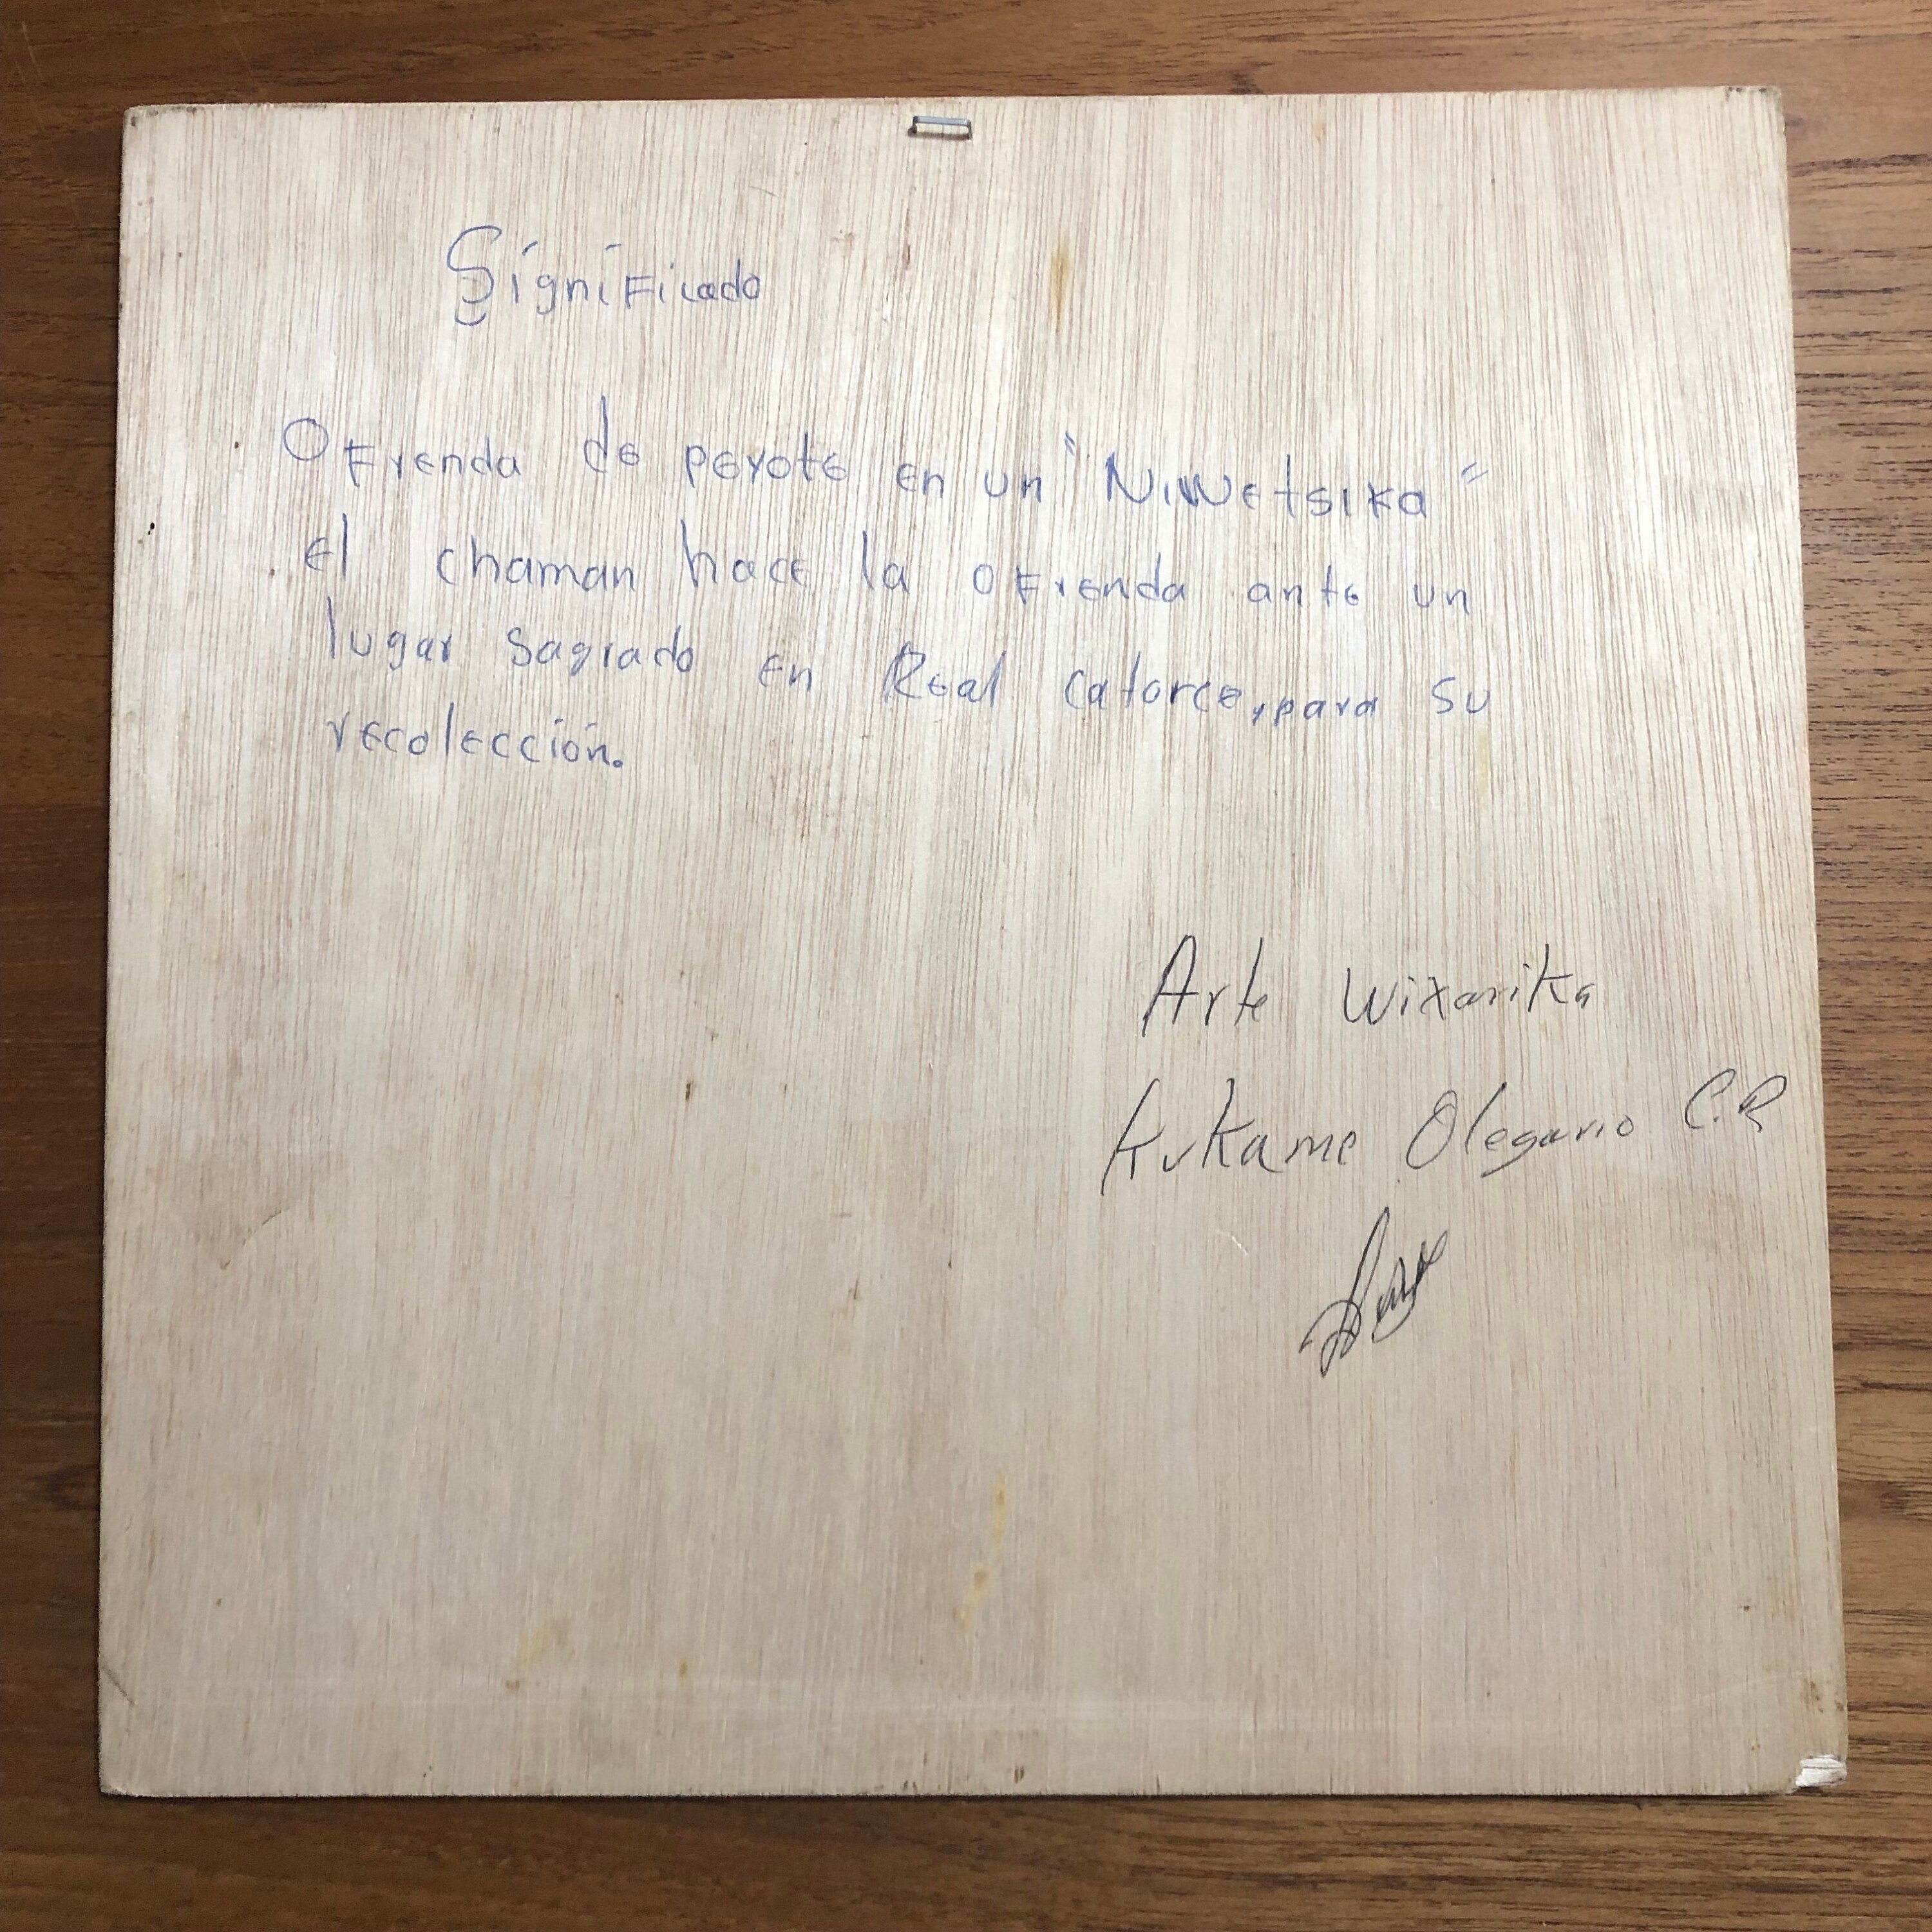 Significado
Ofrenda de peyote en un "Niwetsika"
el chaman hace la ofrenda ante un
lugar sagrado en Real catorce, para su
recolección.
Arte Wixarika
Kukame Olegario C.R